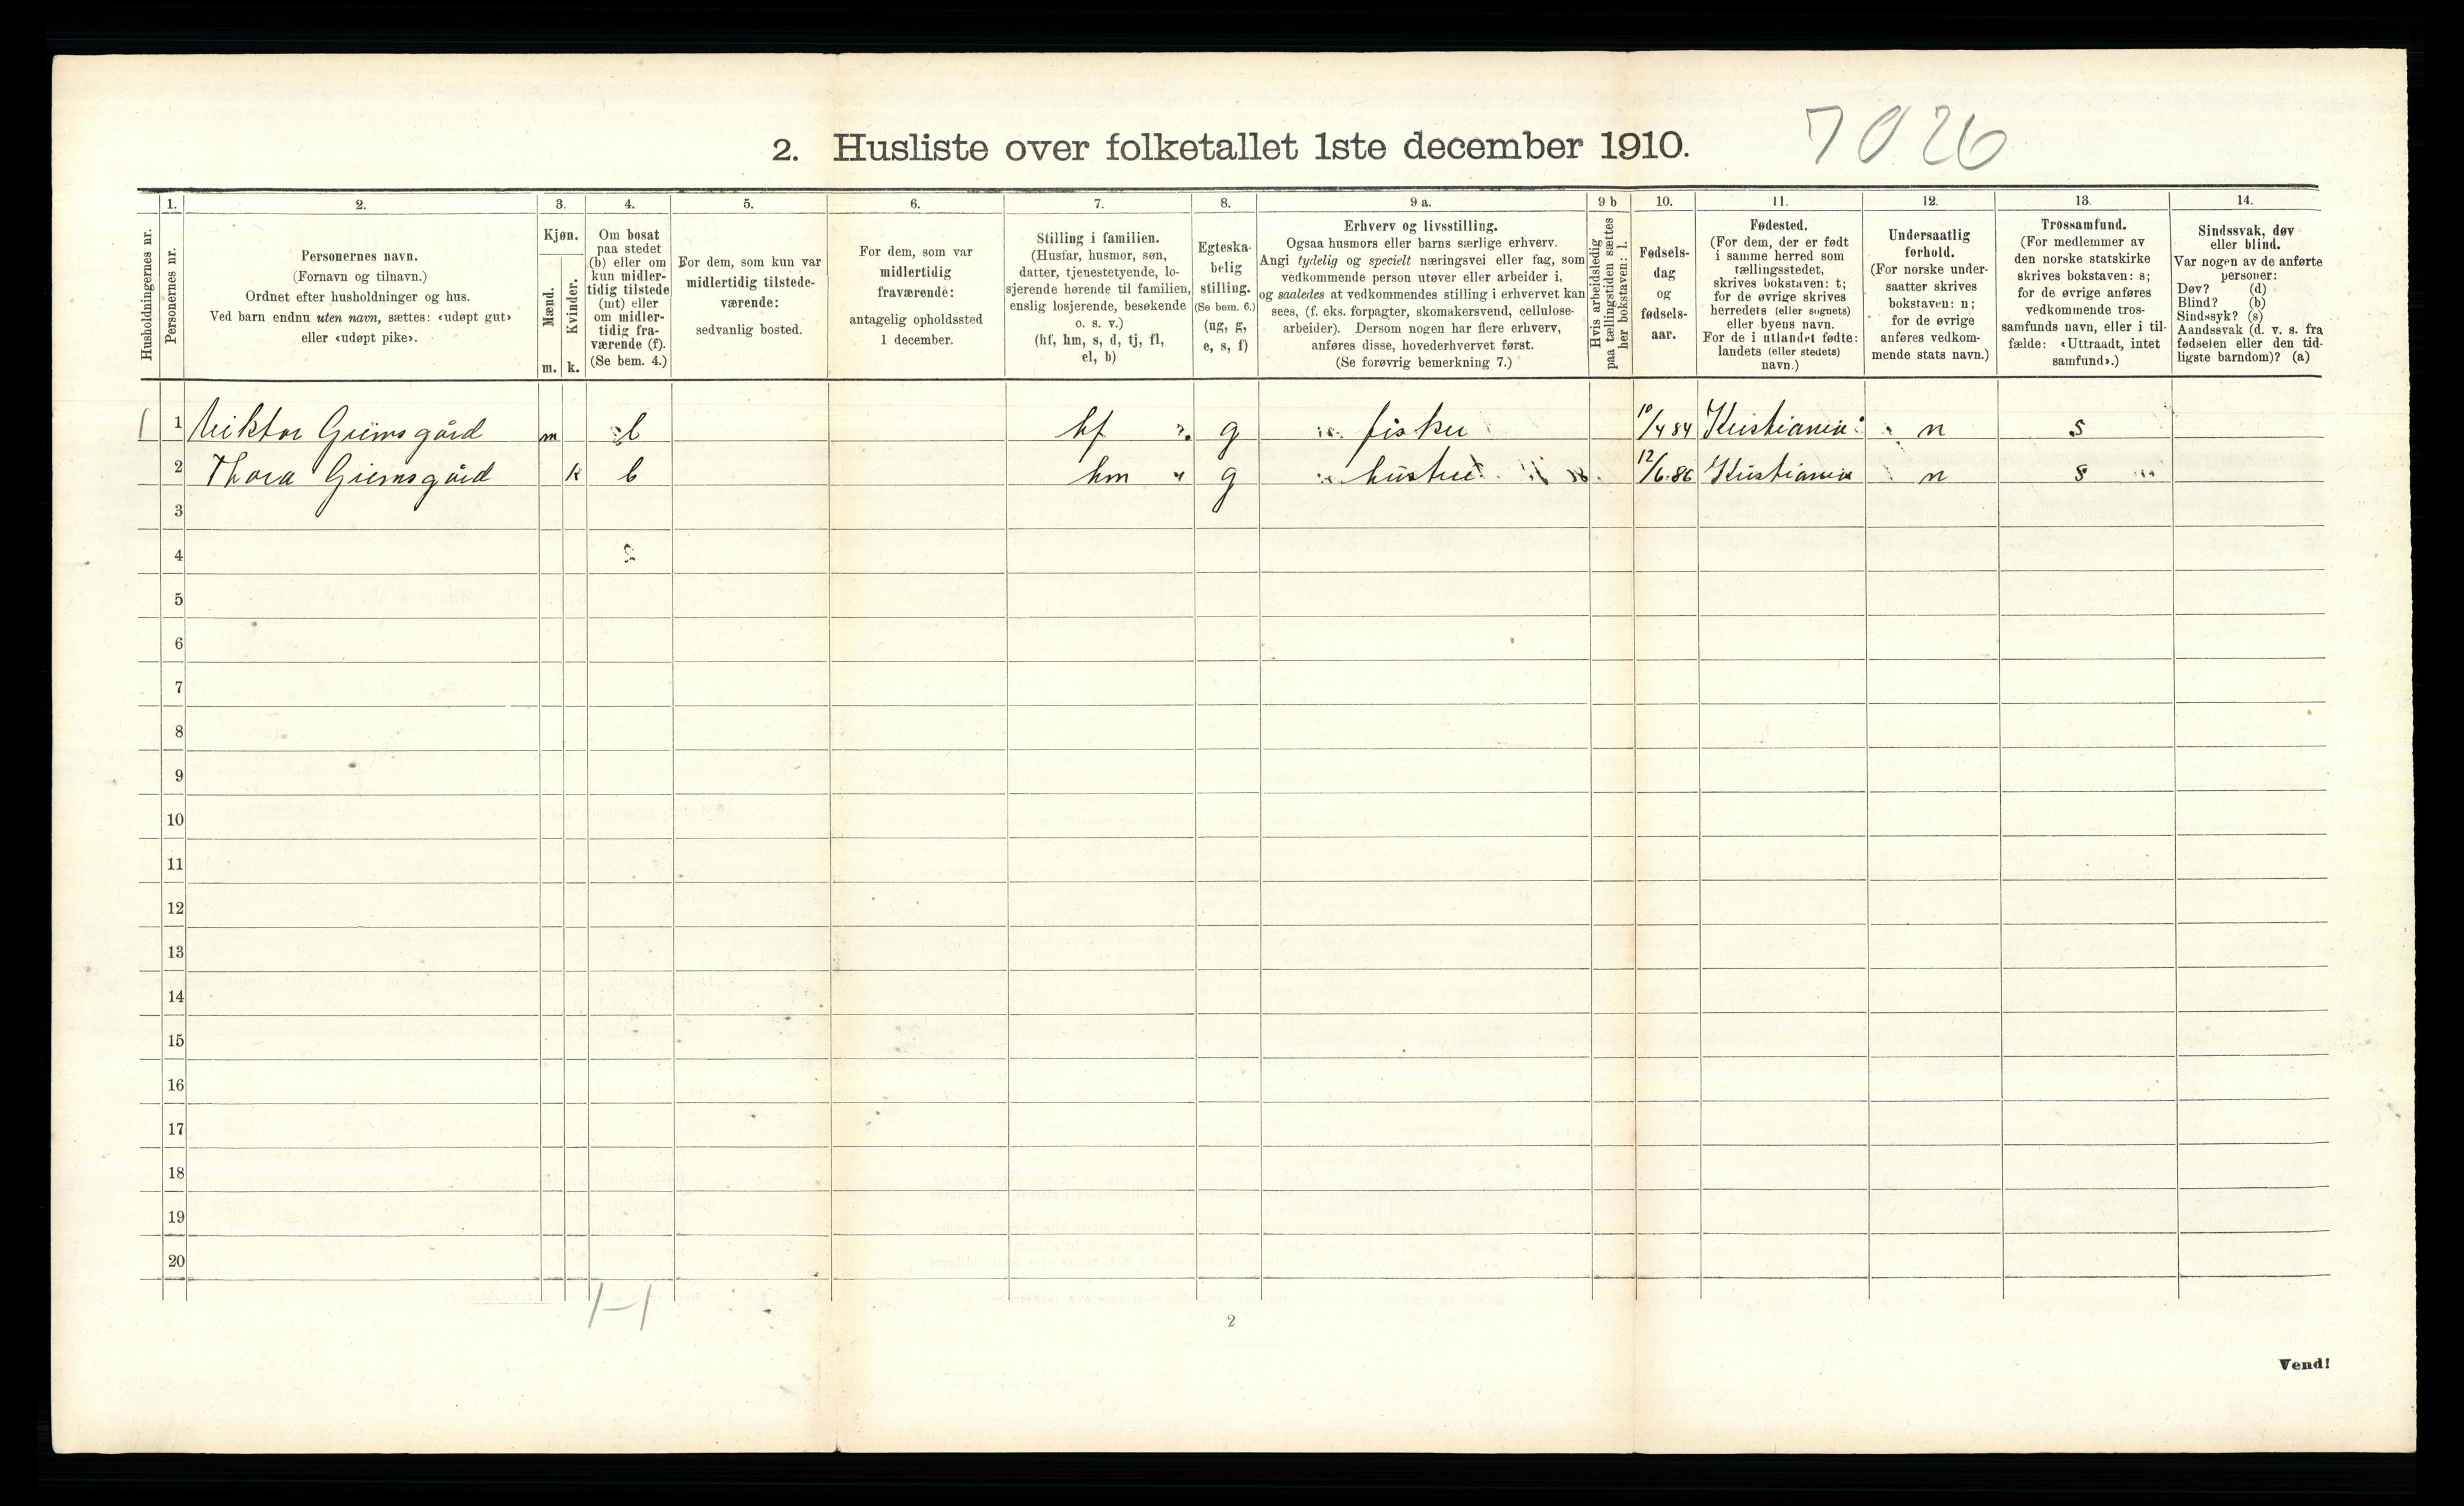 2. Husliste over folketallet 1ste december 1910.
7026
Husholdningernes nr.
1.
Personernes nr.
2.
Personernes navn.
(Fornavn og tilnavn.)
Ordnet efter husholdninger og hus.
Ved barn endnu uten navn, sættes: «udøpt gut»
eller «udøpt pike».
3.
Kjøn.
Mænd.
m.
Kvinder.
k.
4.
Om bosat
paa stedet
(b) eller om
kun midler-
tidig tilstede
(mt) eller
om midler-
tidig fra-
værende (f).
(Se bem. 4.)
5.
For dem, som kun var
midlertidig tilstede-
værende:
sedvanlig bosted.
6.
For dem, som var
midlertidig
fraværende:
antagelig opholdssted
1 december.
7.
Stilling i familien.
(Husfar, husmor, søn,
datter, tjenestetyende, lo-
sjerende hørende til familien,
enslig losjerende, besøkende
o. s. v.)
(hf, hm, s, d, tj, fl,
el, b)
8.
Egteska-
belig
stilling.
(Se bem. 6.)
(ug, g,
e, s, f)
9 a.
Erhverv og livsstilling.
Ogsaa husmors eller barns særlige erhverv.
Angi tydelig og specielt næringsvei eller fag, som
vedkommende person utøver eller arbeider i,
og saaledes at vedkommendes stilling i erhvervet kan
sees, (f. eks. forpagter, skomakersvend, cellulose-
arbeider). Dersom nogen har flere erhverv,
anføres disse, hovederhvervet først.
(Se forøvrig bemerkning 7.)
9 b
Hvis arbeidsledig
paa tællingstiden sættes
her bokstaven: l.
10.
Fødsels-
dag
og
fødsels-
aar.
11.
Fødested.
(For dem, der er født
i samme herred som
tællingsstedet,
skrives bokstaven: t;
for de øvrige skrives
herredets (eller sognets)
eller byens navn.
For de i utlandet fødte:
landets (eller stedets)
navn.)
12.
Undersaatlig
forhold.
(For norske under-
saatter skrives
bokstaven: n;
for de øvrige
anføres vedkom-
mende stats navn.)
13.
Trossamfund.
(For medlemmer av
den norske statskirke
skrives bokstaven: s;
for de øvrige anføres
vedkommende tros-
samfunds navn, eller i til-
fælde: «Uttraadt, intet
samfund».)
14.
Sindssvak, døv
eller blind.
Var nogen av de anførte
personer:
Døv? (d)
Blind? (b)
Sindssyk? (s)
Aandssvak (d. v. s. fra
fødselen eller den tid-
ligste barndom)? (a)
1 Viktor Grimsgård m b hf g fisker 10/4 84 Kristiania n s
2 Thora Grimsgård k b hm g hustru 12/6 86 Kristiania n s
3
4
5
6
7
8
9
10
11
12
13
14
15
16
17
18
19
20
1-1
2
Vend!